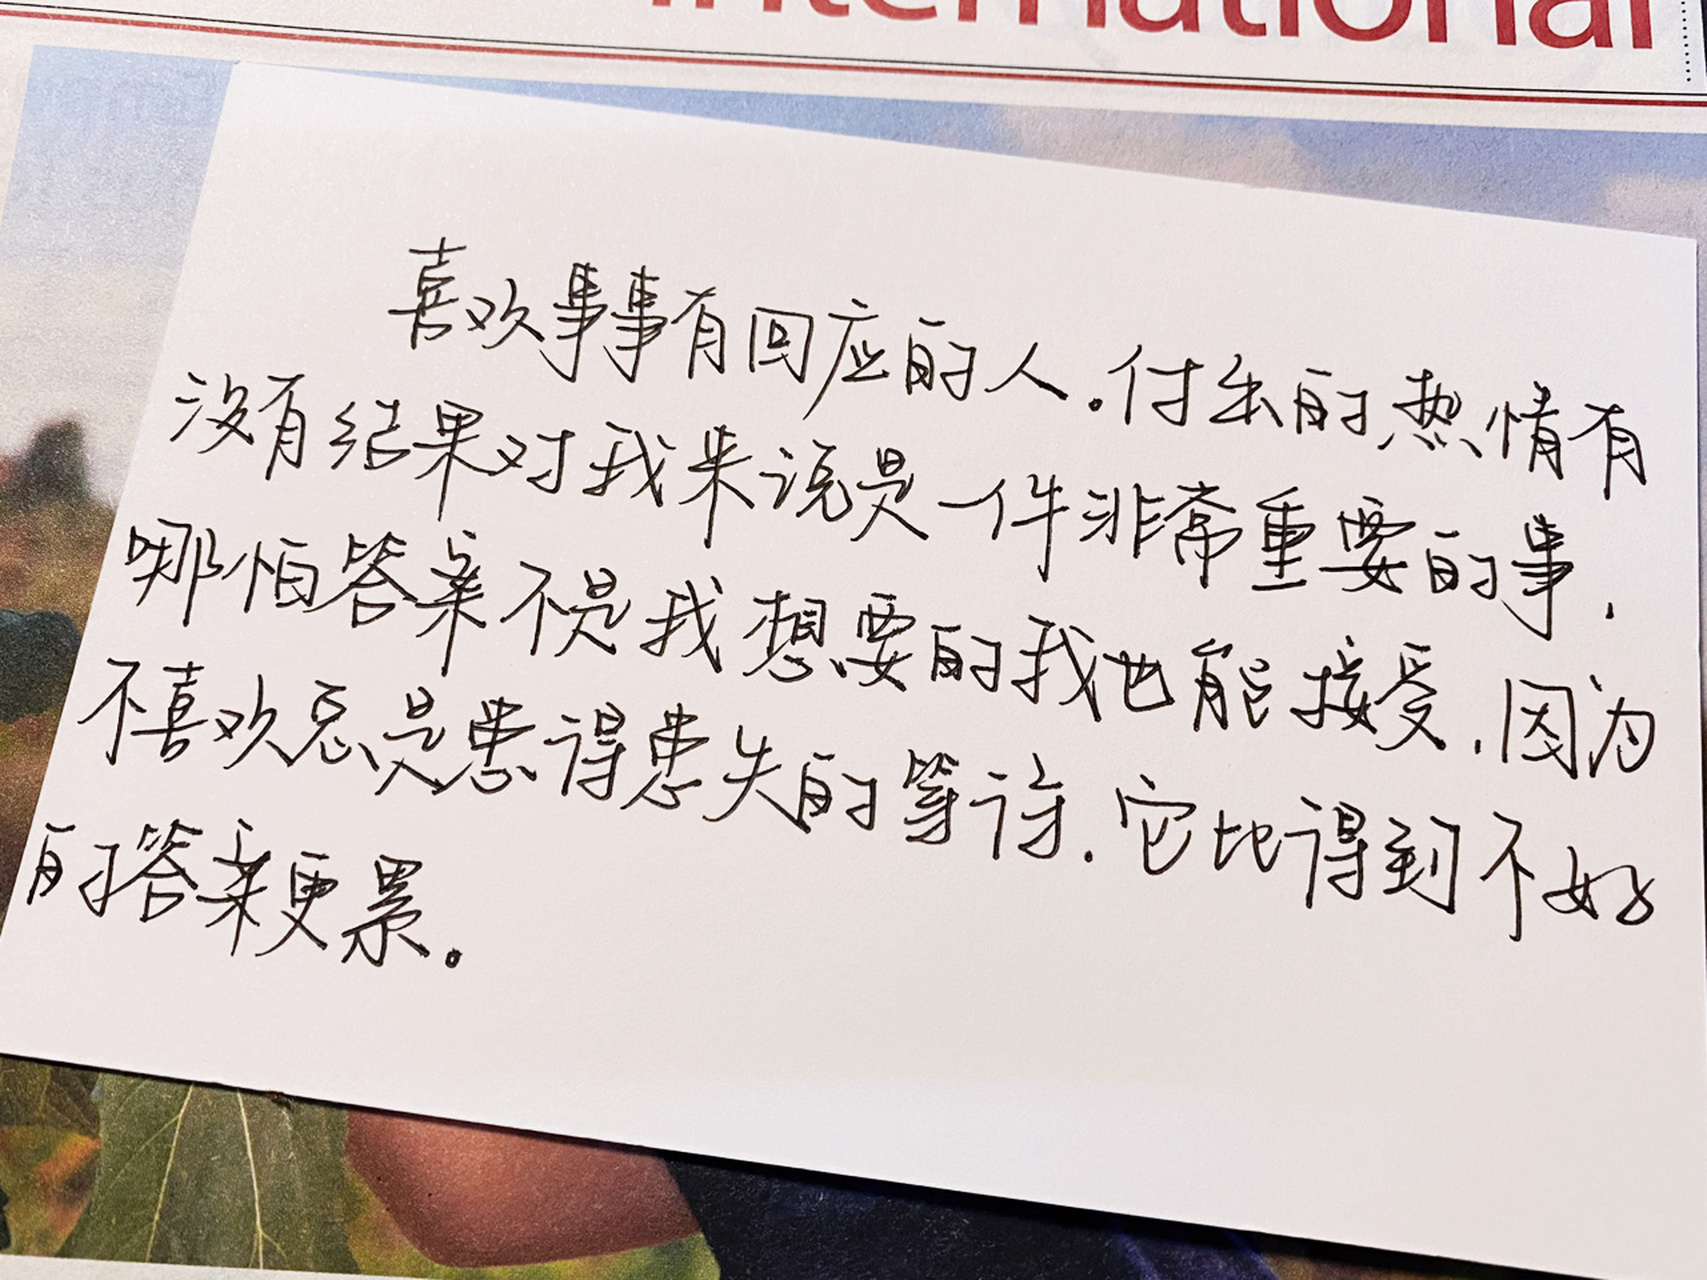 International
喜欢事事有回应的人。付出的热情有
没有结果对我来说是一件非常重要的事,
哪怕答案不是我想要的我也能接受,因为
不喜欢总是患得患失的等待.它比得到不好
的答案更累。